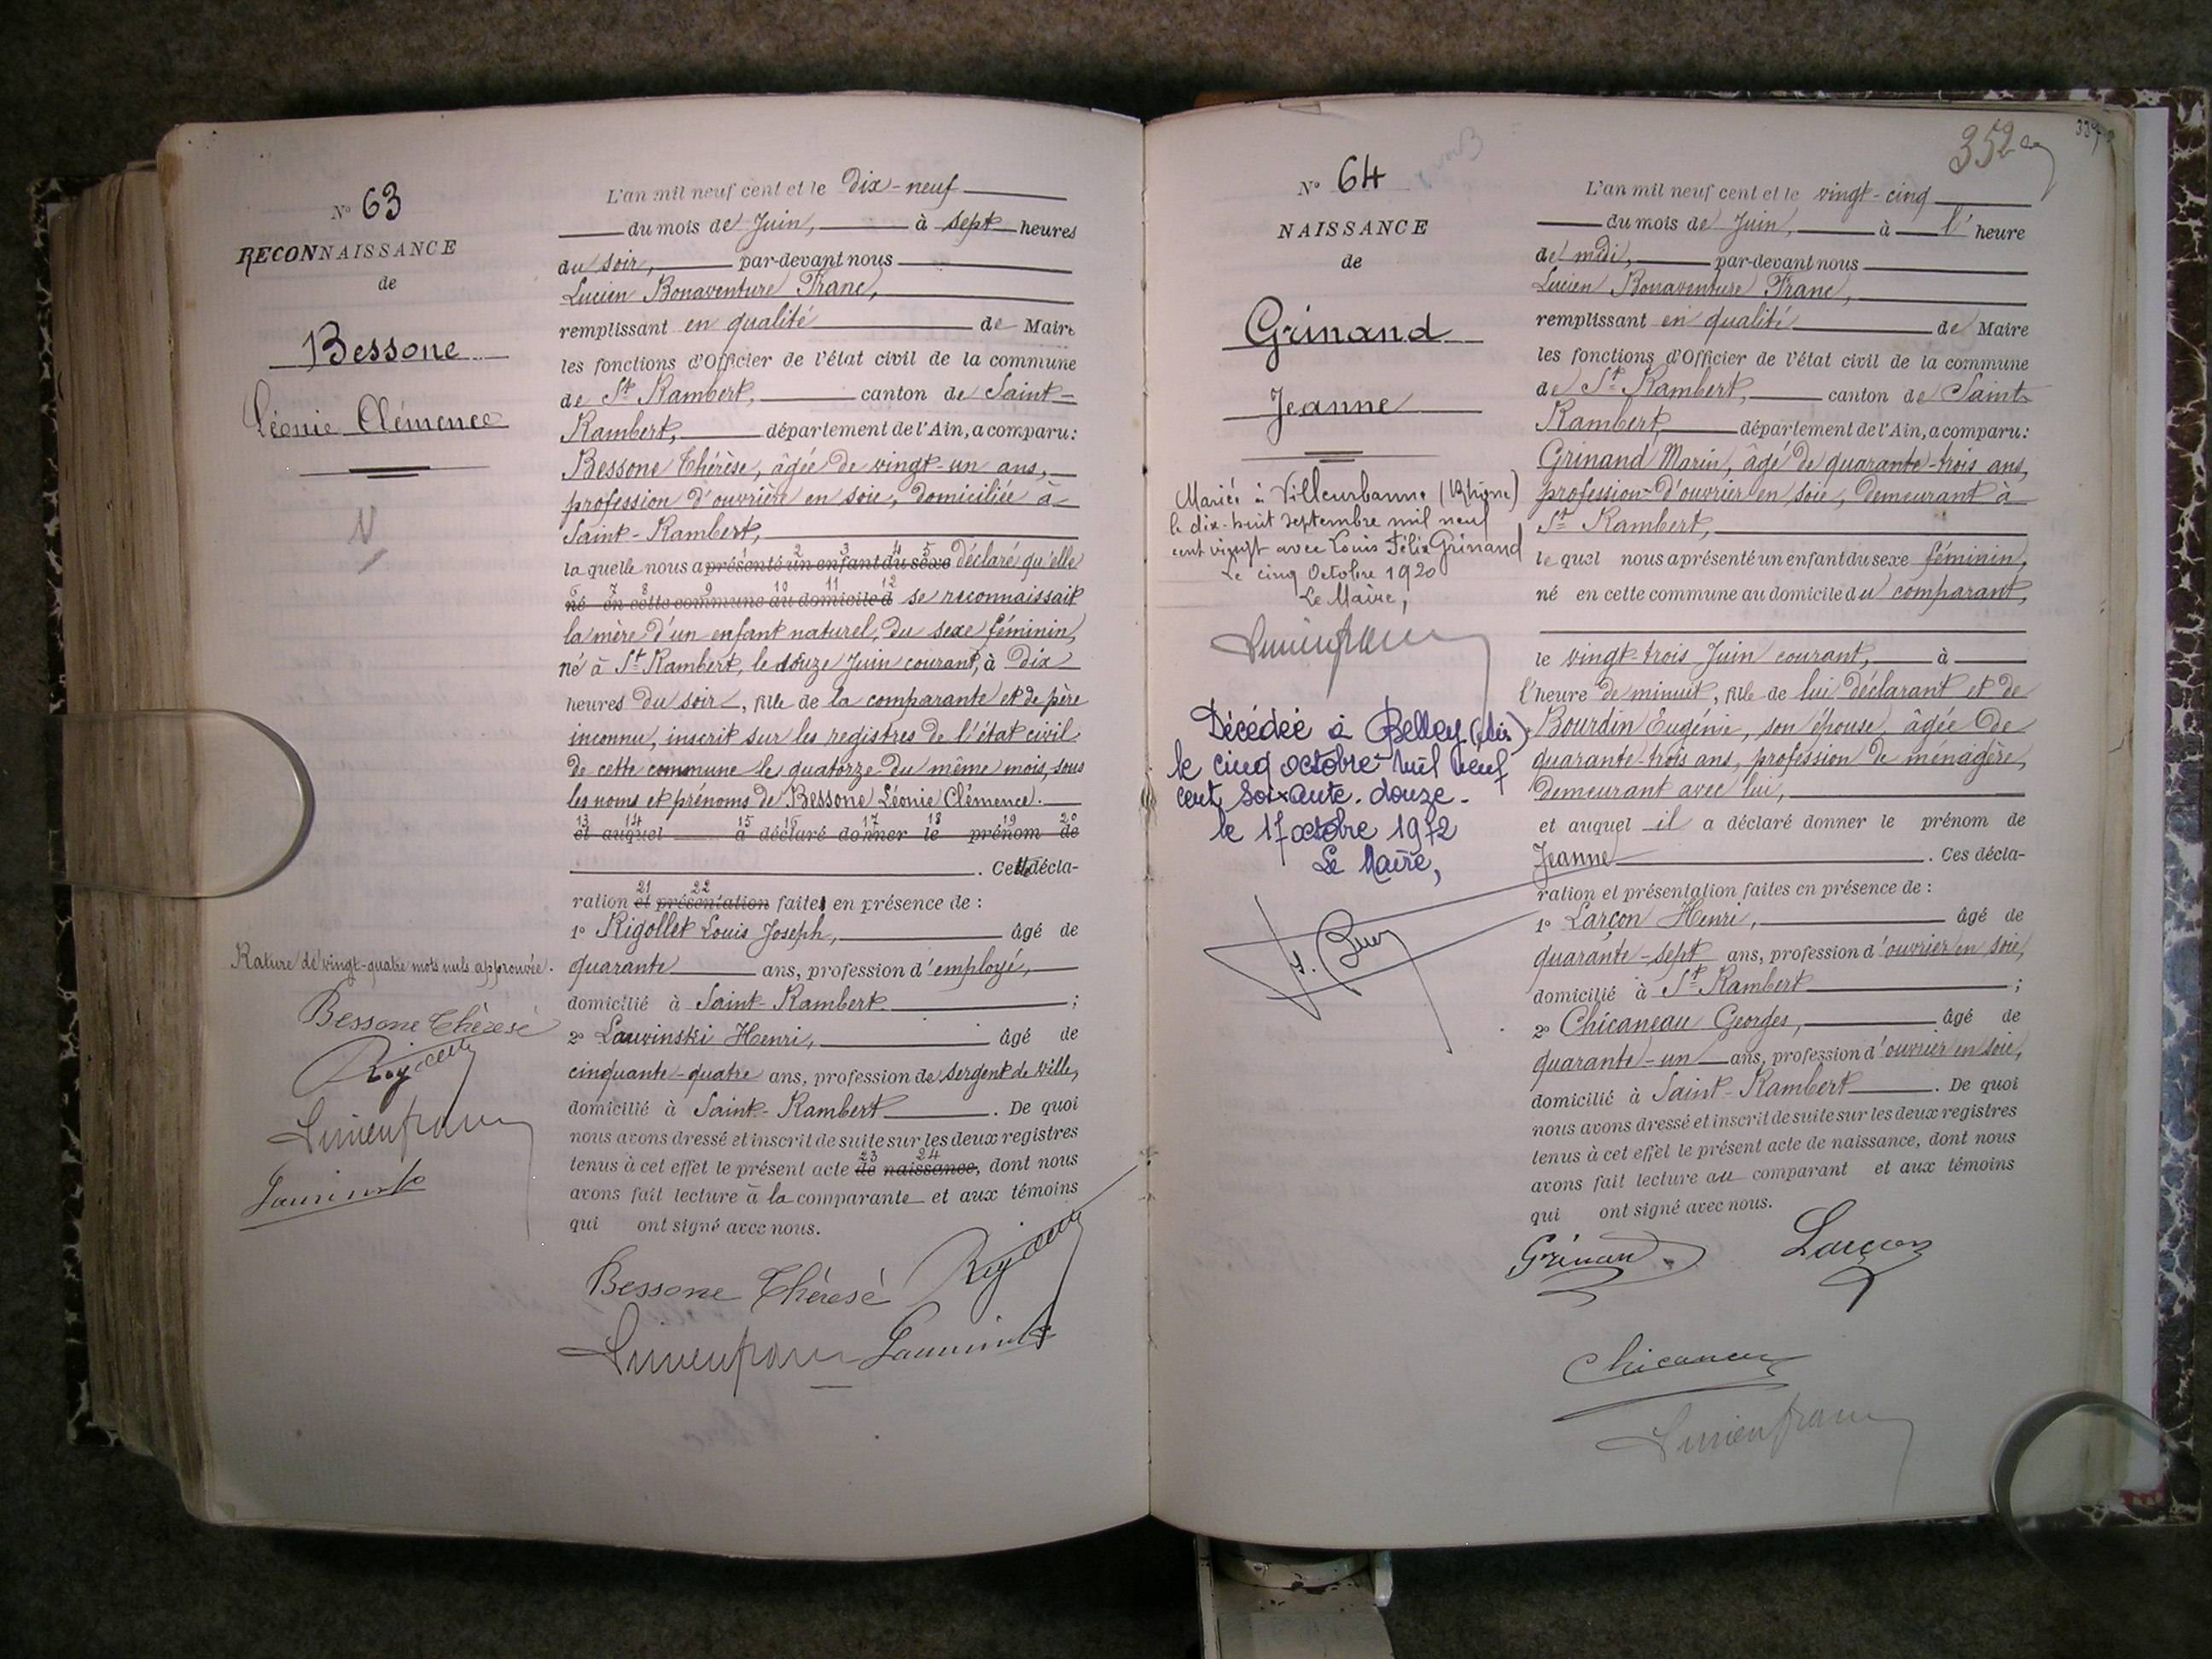 N° 63
RECONNAISSANCE
de
Bessone
Léonie Clémence
N
L'an mil neuf cent et le dix-neuf
du mois de Juin, à sept heures
du soir, par-devant nous
Lucien Bonaventure Franc,
remplissant en qualité de Maire
les fonctions d'Officier de l'état civil de la commune
de St Rambert, canton de Saint-
Rambert, département de l'Ain, a comparu:
Bessone Thérèse, âgée de vingt-un ans,
profession d'ouvrière en soie, domiciliée à
Saint-Rambert,
2 3 4 5
la quelle nous a présenté un enfant du sexe déclaré qu'elle
6 7 8 9 10 11 12
né en cette commune au domicile d se reconnaissait
la mère d'un enfant naturel, du sexe féminin,
né à St Rambert, le douze Juin courant, à dix
heures du soir, fille de la comparante et de père
inconnu, inscrit sur les registres de l'état civil
de cette commune le quatorze du même mois, sous
les noms et prénoms de Bessone Léonie Clémence.
13 14 15 16 17 18 19 20
et auquel a déclaré donner le prénom de
. Cette décla-
21 22
ration et présentation faites en présence de :
1° Rigollet Louis Joseph, âgé de
quarante ans, profession d'employé,
domicilié à Saint-Rambert ;
2° Lauvinski Henri, âgé de
cinquante-quatre ans, profession de sergent de ville,
domicilié à Saint-Rambert . De quoi
nous avons dressé et inscrit de suite sur les deux registres
23 24
tenus à cet effet le présent acte de naissance, dont nous
avons fait lecture à la comparante et aux témoins
qui ont signé avec nous.
Rature de vingt-quatre mots nuls approuvée.
Bessone Thérèsé
Lucien franc
Bessone Thérèsé
Lucien franc
352
N° 64
NAISSANCE
de
Grinand
Jeanne
Mariée à Villeurbanne (Rhône)
le dix-huit septembre mil neuf
cent vingt avec Louis Félix Grinand
Le cinq Octobre 1920
Le Maire,
Lucien franc
Décédée à Belley (Ain)
le cinq octobre mil neuf
cent soixante-douze-
le 17 octobre 1972
Le Maire,
L'an mil neuf cent et le vingt-cinq
du mois de Juin, à l'heure
de midi, par-devant nous
Lucien Bonaventure Franc,
remplissant en qualité de Maire
les fonctions d'Officier de l'état civil de la commune
de St Rambert, canton de Saint
Rambert, département de l'Ain, a comparu:
Grinand Marin, âgé de quarante-trois ans,
profession d'ouvrier en soie, demeurant à
St Rambert,
le quel nous a présenté un enfant du sexe féminin,
né en cette commune au domicile du comparant,
le vingt-trois Juin courant, à
l'heure de minuit, fille de lui déclarant et de
Bourdin Eugénie, son épouse, âgée de
quarante-trois ans, profession de ménagère,
demeurant avec lui,
et auquel il a déclaré donner le prénom de
Jeanne . Ces décla-
ration et présentation faites en présence de :
1° Larçon Henri, âgé de
quarante-sept ans, profession d'ouvrier en soie,
domicilié à St Rambert ;
2° Chicaneau Georges, âgé de
quarante-un ans, profession d'ouvrier en soie,
domicilié à Saint-Rambert . De quoi
nous avons dressé et inscrit de suite sur les deux registres
tenus à cet effet le présent acte de naissance, dont nous
avons fait lecture au comparant et aux témoins
qui ont signé avec nous.
Grinand Larçon
Chicaneau
Lucien franc